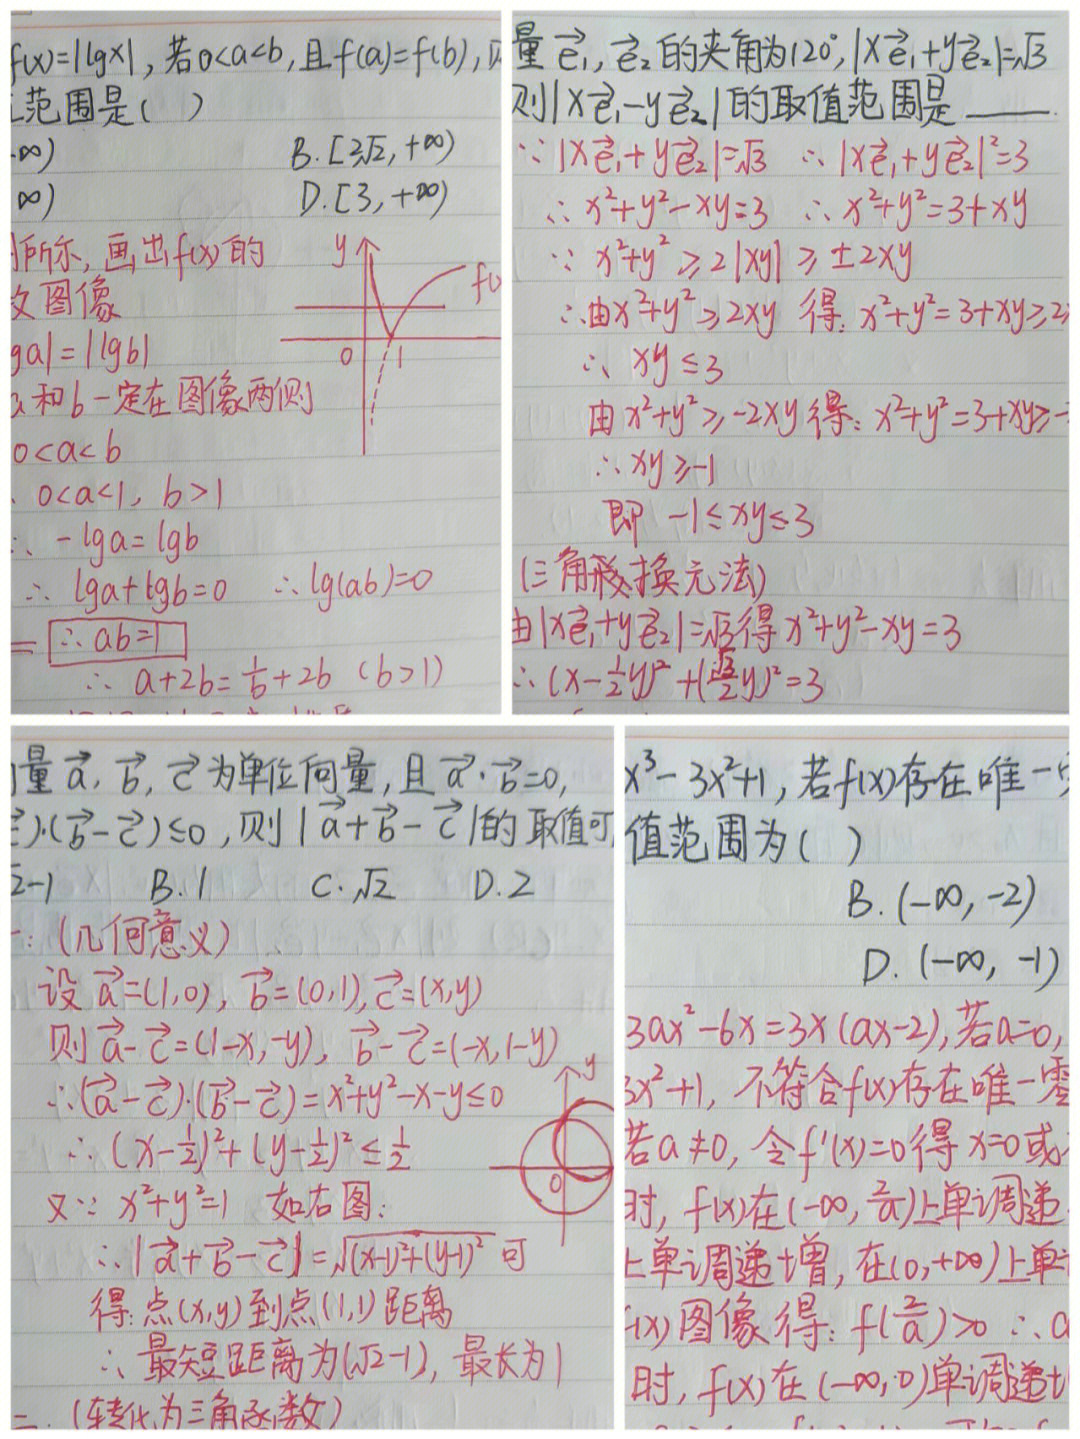 f(x)=|lgx|, 若0<a<b, 且f(a)=f(b),
范围是( )
∞) B. [2√2, +∞)
∞) D. [3, +∞)
所示, 画出f(x)的
图像
ga|=|lgb|
a和b一定在图像两侧
0<a<b
0<a<1, b>1
∴ -lga=lgb
∴ lga+lgb=0 ∴lg(ab)=0
∴ab=1
∴ a+2b=1/b+2b (b>1)
y
0 1
量e₁→, e₂→的夹角为120°, |xe₁→+ye₂→|=√3
则|xe₁→-ye₂→|的取值范围是____.
∵|xe₁→+ye₂→|=√3 ∴|xe₁→+ye₂→|²=3
∴x²+y²-xy=3 ∴x²+y²=3+xy
∵ x²+y²≥2|xy|≥±2xy
∴由x²+y²≥2xy 得: x²+y²=3+xy≥2
∴ xy≤3
由x²+y²≥-2xy得: x²+y²=3+xy≥-
∴xy≥-1
即 -1≤xy≤3
(三角形换元法)
由|xe₁→+ye₂→|=√3得x²+y²-xy=3
∴(x-½y)²+(√3/2 y)²=3
量a→, b→, c→为单位向量, 且a→·b→=0,
)·(b→-c→)≤0, 则|a→+b→-c→|的取值可
2-1 B. 1 C. √2 D. 2
(几何意义)
设a→=(1,0), b→=(0,1), c→=(x,y)
则a→-c→=(1-x,-y), b→-c→=(-x,1-y)
∴(a→-c→)·(b→-c→)=x²+y²-x-y≤0
∴(x-½)²+(y-½)²≤½
又∵ x²+y²=1 如右图:
∴|a→+b→-c→|=√(x-1)²+(y-1)² 可
得:点(x,y)到点(1,1)距离
∴最短距离为(√2-1), 最长为1
二. (转化为三角函数)
y
0
x³-3x²+1, 若f(x)存在唯一
值范围为( )
B. (-∞, -2)
D. (-∞, -1)
3ax²-6x=3x(ax-2), 若a=0,
3x²+1, 不符合f(x)存在唯一零
若a≠0, 令f'(x)=0得x=0或
时, f(x)在(-∞, 2/a)上单调递
上单调递增, 在(0,+∞)上单
f(x)图像得: f(2/a)>0 ∴a
时, f(x)在(-∞,0)单调递